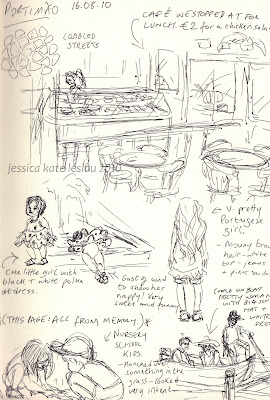 PORTIMÃO 16.08.10
CAFÉ WE STOPPED AT FOR
LUNCH. €2 for a chicken salad
COBBLED
STREETS
jessica kate
V. pretty
Portugese
girl
- Mousy brown
hair - white
top - jeans
Cute little girl with
black + white polka
dot dress.
- Gust of wind
to show her
nappy! Very
sweet and funny
COUPLE ON BOAT
PRETTY WOMAN
WITH BIG SUN
HAT +
WHITE
(THIS PAGE: ALL FROM MEMORY)
NURSERY
SCHOOL
KIDS.
- Hunched over
something in the
grass - looked
very intent